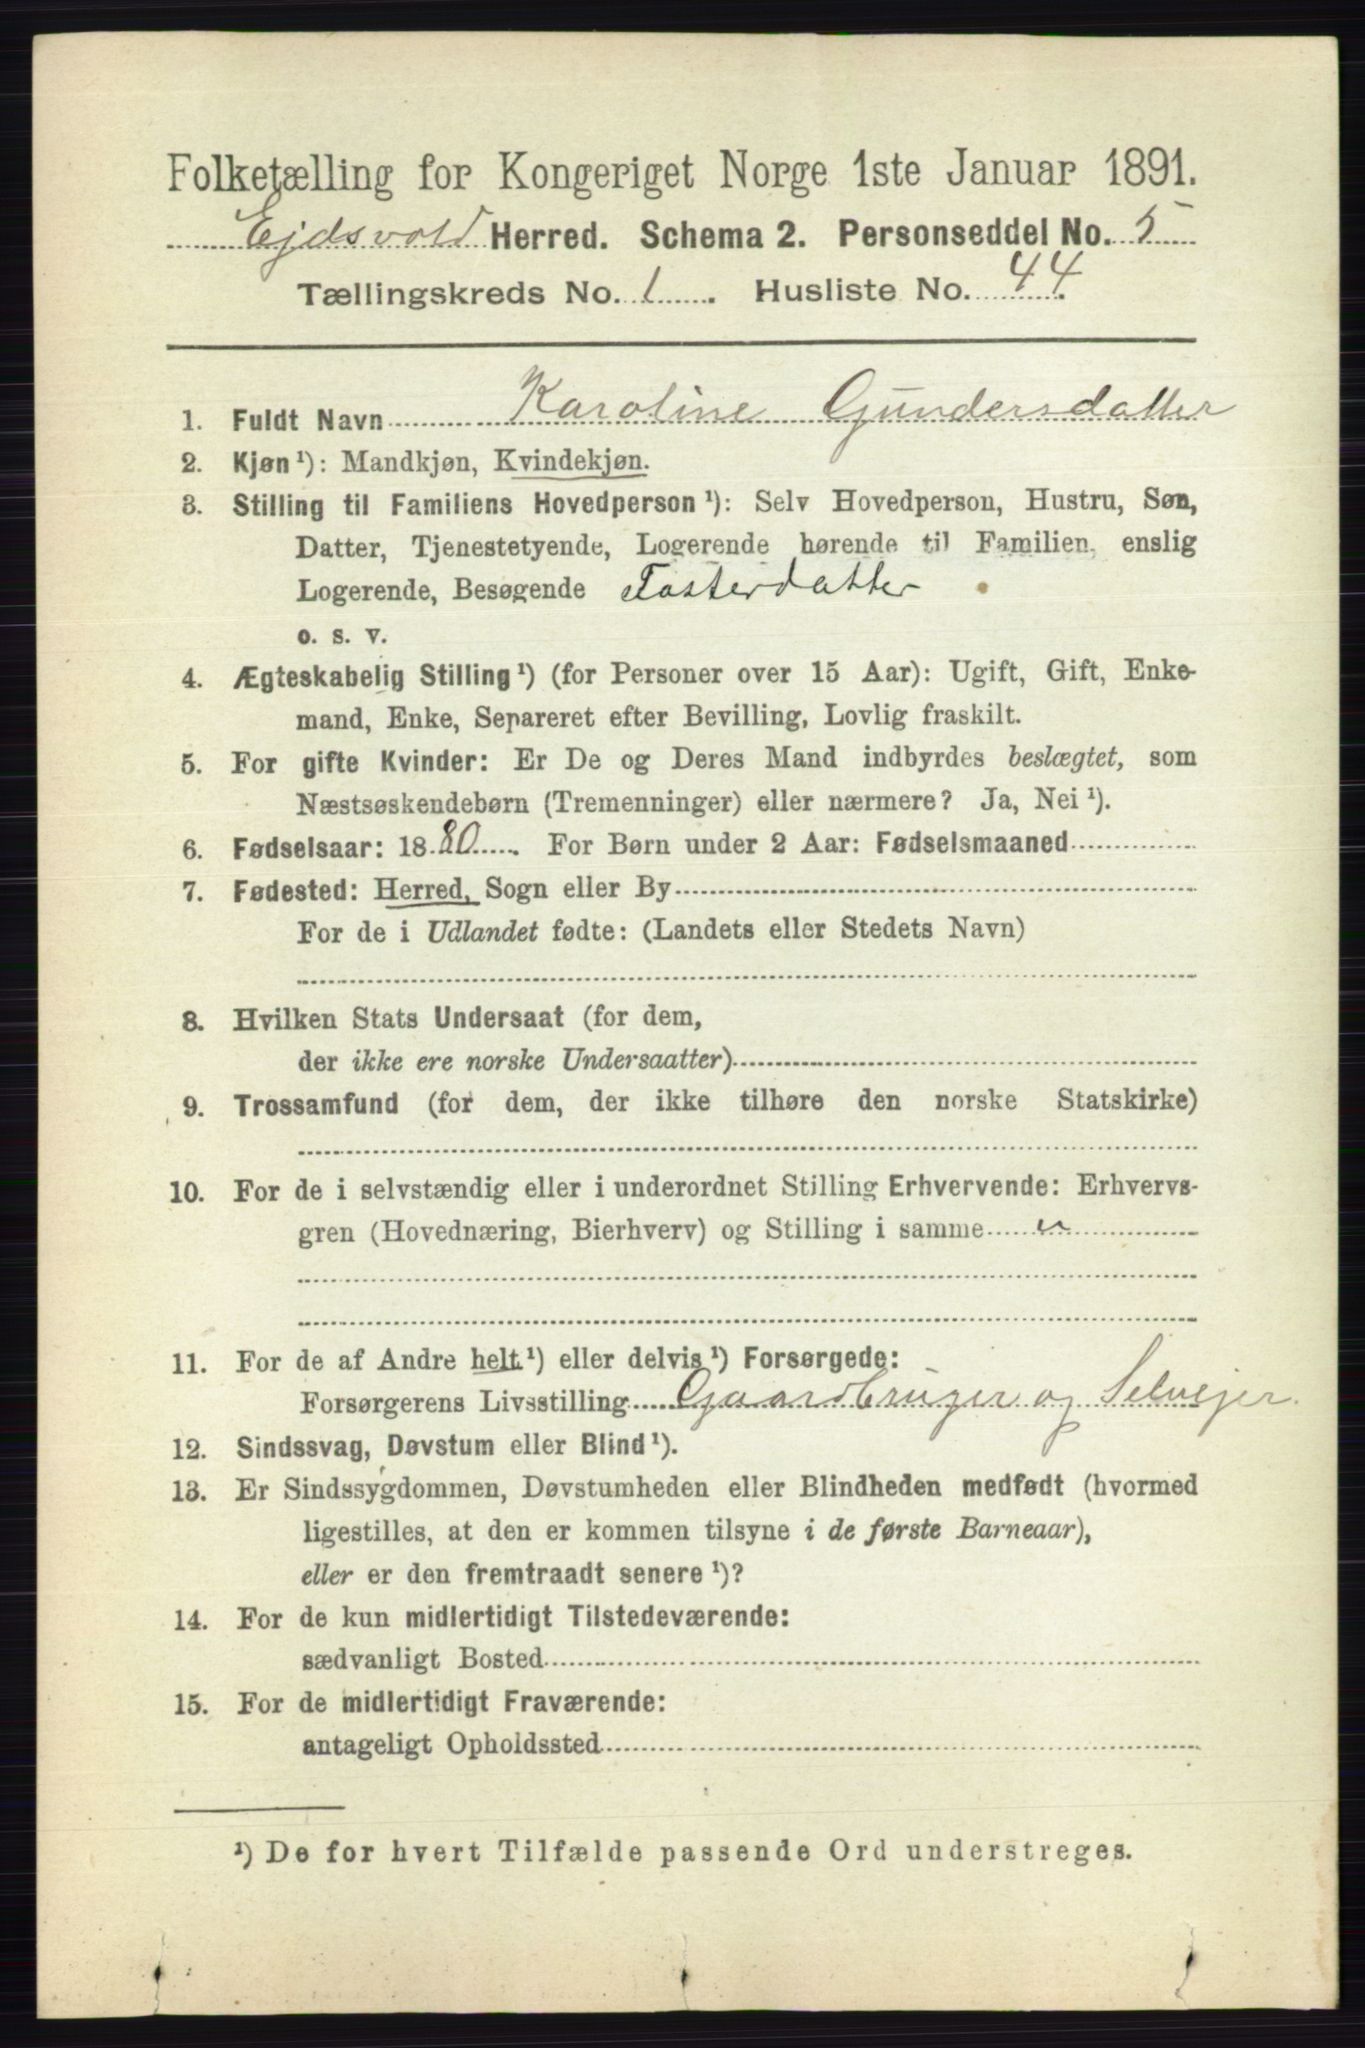 Folketælling for Kongeriget Norge 1ste Januar 1891.
Ejdsvold Herred. Schema 2. Personseddel No. 5
Tællingskreds No. 1. Husliste No. 44.
1. Fuldt Navn Karoline Gundersdatter
2. Kjøn ¹): Mandkjøn, Kvindekjøn.
3. Stilling til Familiens Hovedperson ¹): Selv Hovedperson, Hustru, Søn,
Datter, Tjenestetyende, Logerende hørende til Familien, enslig
Logerende, Besøgende Fosterdatter
o. s. v.
4. Ægteskabelig Stilling ¹) (for Personer over 15 Aar): Ugift, Gift, Enke-
mand, Enke, Separeret efter Bevilling, Lovlig fraskilt.
5. For gifte Kvinder: Er De og Deres Mand indbyrdes beslægtet, som
Næstsøskendebørn (Tremenninger) eller nærmere? Ja, Nei ¹).
6. Fødselsaar: 1880. For Børn under 2 Aar: Fødselsmaaned
7. Fødested: Herred, Sogn eller By
For de i Udlandet fødte: (Landets eller Stedets Navn)
8. Hvilken Stats Undersaat (for dem,
der ikke ere norske Undersaatter)
9. Trossamfund (for dem, der ikke tilhøre den norske Statskirke)
10. For de i selvstændig eller i underordnet Stilling Erhvervende: Erhvervs-
gren (Hovednæring, Bierhverv) og Stilling i samme
11. For de af Andre helt ¹) eller delvis ¹) Forsørgede:
Forsørgerens Livsstilling Gaardbruger og Selvejer.
12. Sindssvag, Døvstum eller Blind ¹).
13. Er Sindssygdommen, Døvstumheden eller Blindheden medfødt (hvormed
ligestilles, at den er kommen tilsyne i de første Barneaar),
eller er den fremtraadt senere ¹)?
14. For de kun midlertidigt Tilstedeværende:
sædvanligt Bosted
15. For de midlertidigt Fraværende:
antageligt Opholdssted
¹) De for hvert Tilfælde passende Ord understreges.